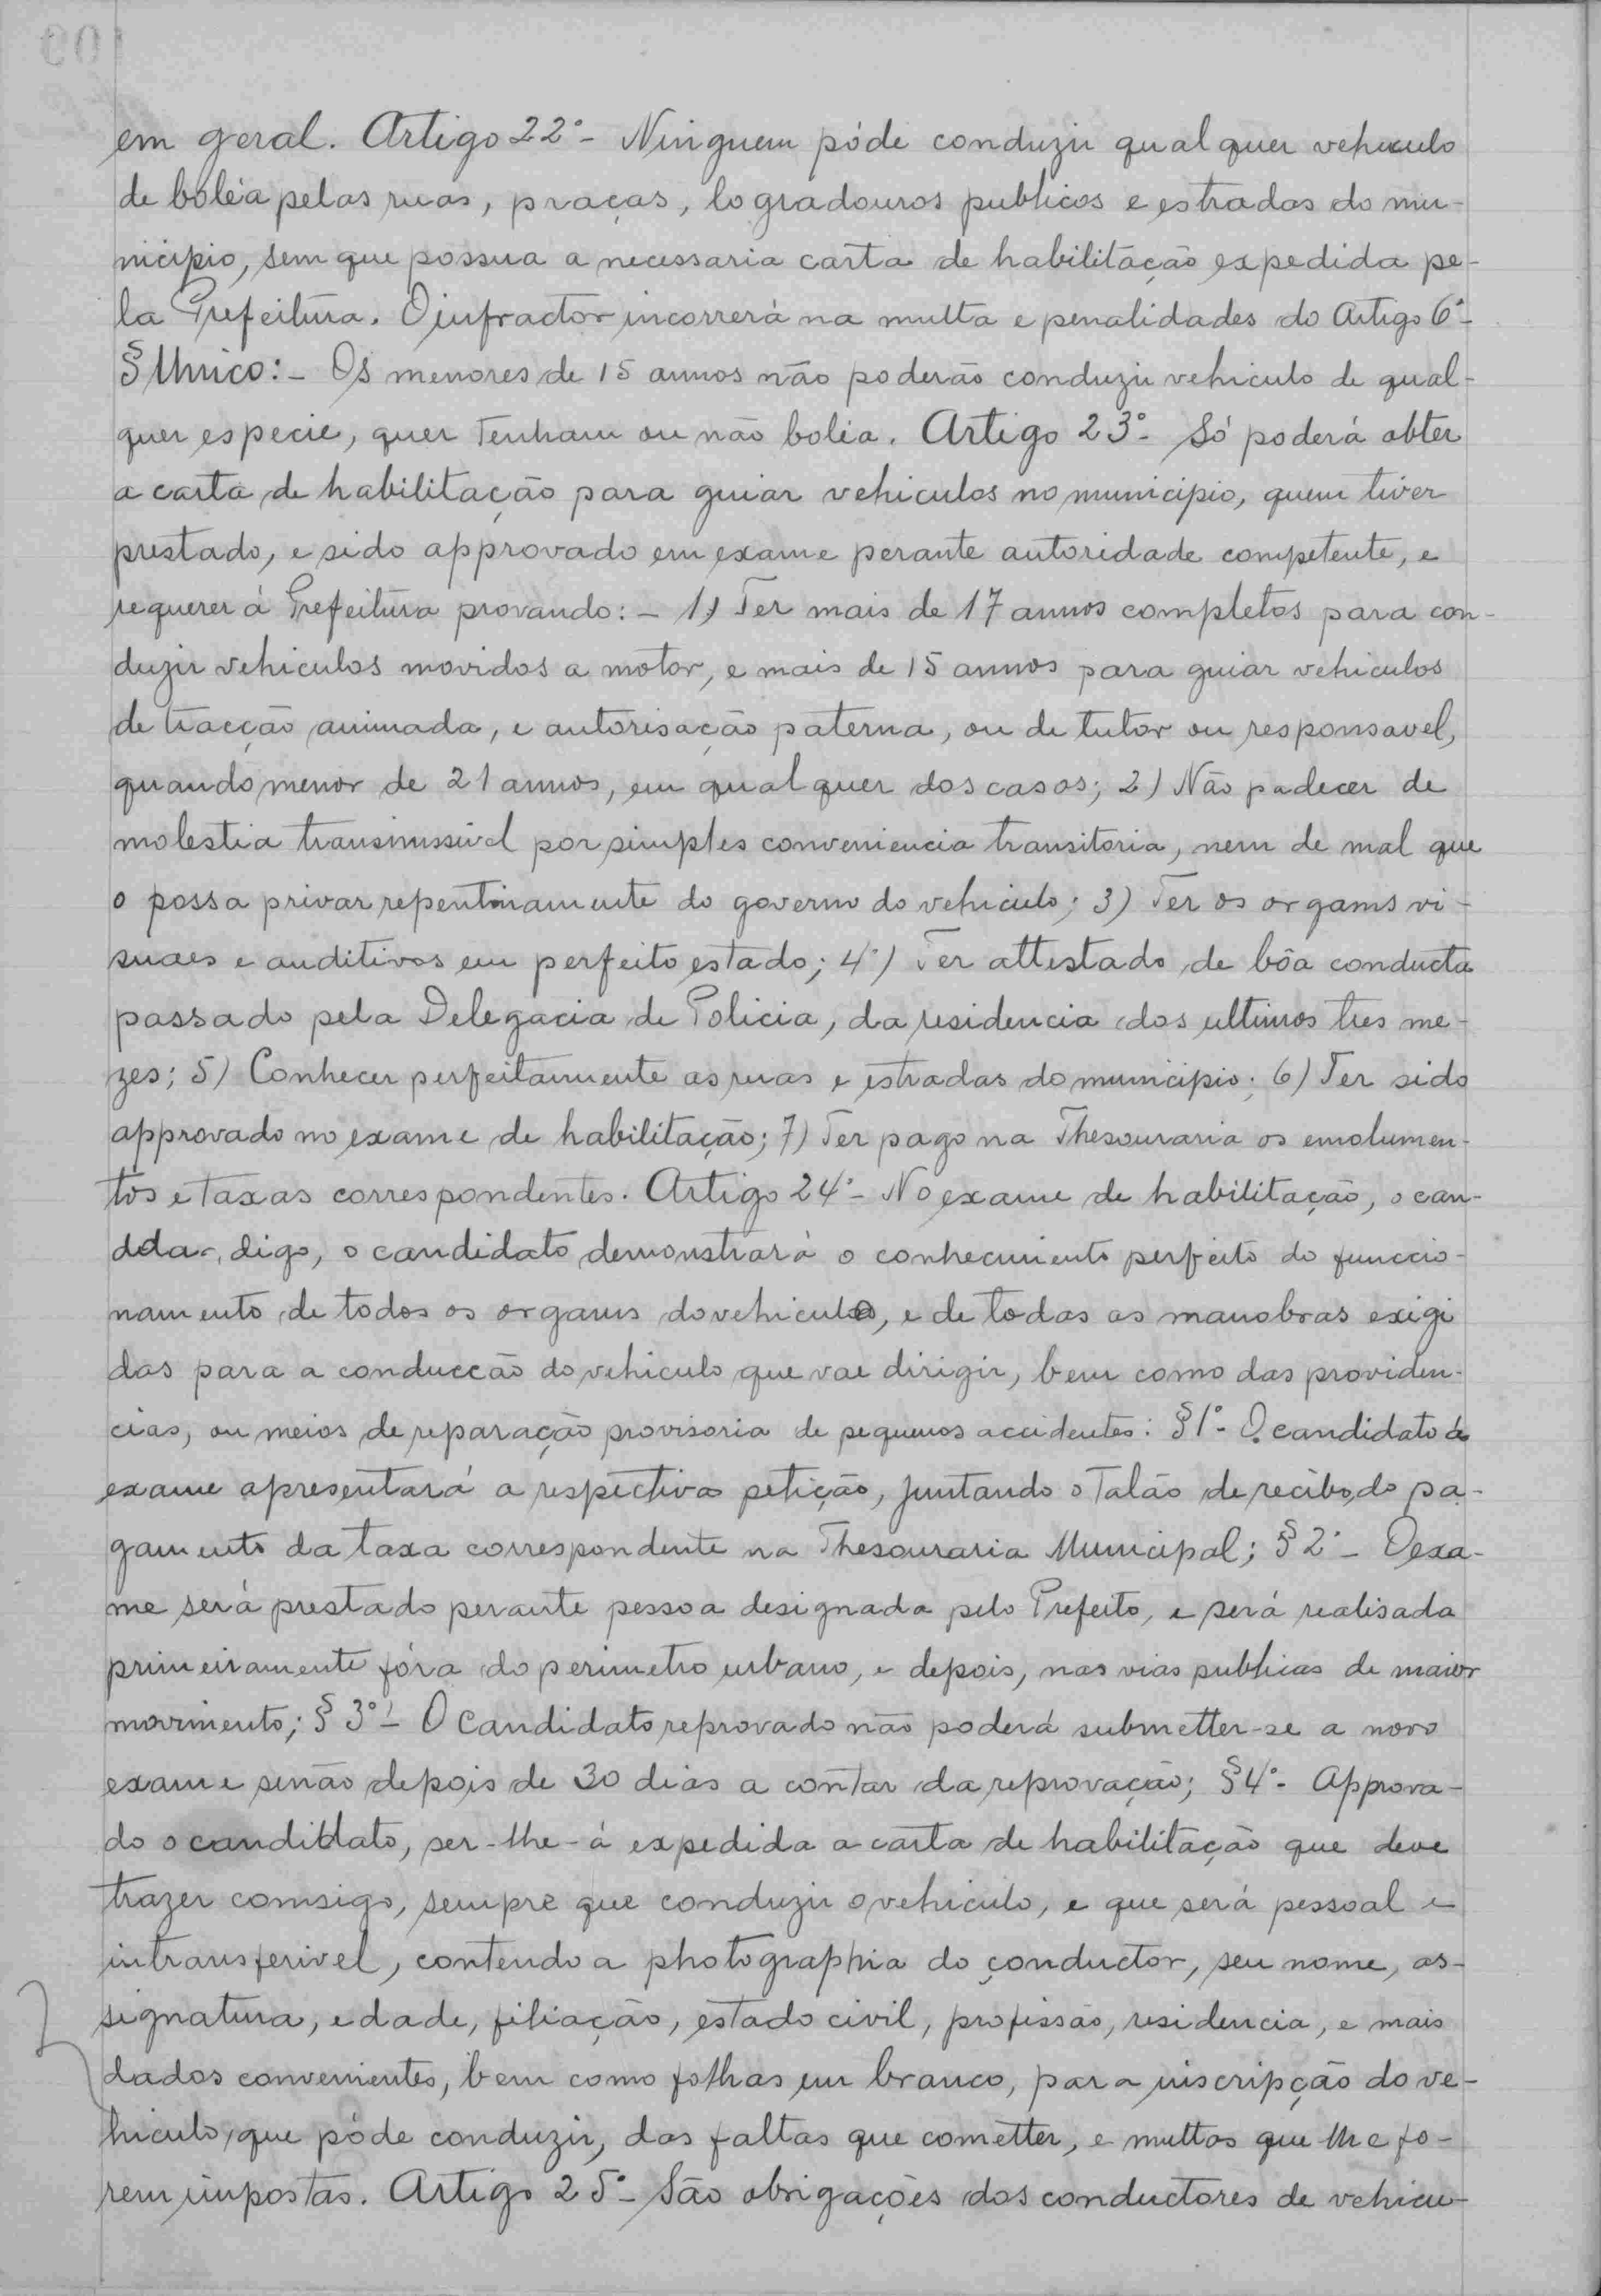 em geral. Artigo 22º - Ninguem póde conduzir qualquer vehiculo
de boléa pelas ruas, praças, logradouros publicos e estradas do mu-
nicipio, sem que possua a necessaria carta de habilitação expedida pe-
la Prefeitura. O infractor incorrerá na multa e penalidades do Artigo 6º -
§ Unico: - Os menores de 15 annos não poderão conduzir vehiculo de qual-
quer especie, quer tenham ou não boléa. Artigo 23º - Só poderá obter
a carta de habilitação para guiar vehiculos no municipio, quem tiver
prestado, e sido approvado em exame perante autoridade competente, e
requerer á Prefeitura provando: - 1) Ter mais de 17 annos completos para con-
duzir vehiculos movidos a motor, e mais de 15 annos para guiar vehiculos
de tracção animada, e autorisação paterna, ou de tutor ou responsavel,
quando menor de 21 annos, em qualquer dos casos; 2) Não padecer de
molestia transmissivel por simples conveniencia transitoria, nem de mal que
o possa privar repentinamente do governo do vehiculo; 3) Ter os orgams vi-
suaes e auditivos em perfeito estado; 4º) Ter attestado de bôa conducta
passado pela Delegacia de Policia, da residencia dos ultimos tres me-
zes; 5) Conhecer perfeitamente as ruas e estradas do municipio; 6) Ter sido
approvado no exame de habilitação; 7) Ter pago na Thesouraria os emolumen-
tos e taxas correspondentes. Artigo 24º - No exame de habilitação, o can-
ddar, digo, o candidato demonstrará o conhecimento perfeito do funccio-
namento de todos os orgams do vehiculo, e de todas as manobras exigi
das para a conducção do vehiculo que vae dirigir, bem como das providen-
cias, ou meios de reparação provisoria de pequenos accidentes: § 1º - O candidato á
exame apresentará a respectiva petição, juntando o talão de recibo do pa-
gamento da taxa correspondente na Thesouraria Municipal; § 2º - O exa-
me será prestado perante pessoa designada pelo Prefeito, e será realisada
primeiramente fóra do perimetro urbano, e depois, nas vias publicas de maior
movimento; § 3º - O Candidato reprovado não poderá submetter-se a novo
exame senão depois de 30 dias a contar da reprovação; § 4º - Approva-
do o candidato, ser-lhe-á expedida a carta de habilitação que deve
trazer comsigo, sempre que conduzir o vehiculo, e que será pessoal e
intransferivel, contendo a photographia do conductor, seu nome, as-
signatura, edade, filiação, estado civil, profissão, residencia, e mais
dados convenientes, bem como folhas em branco, para inscripção do ve-
hiculo, que póde conduzir, das faltas que cometter, e multas que lhe fo-
rem impostas. Artigo 25º - São obrigações dos conductores de vehicu-